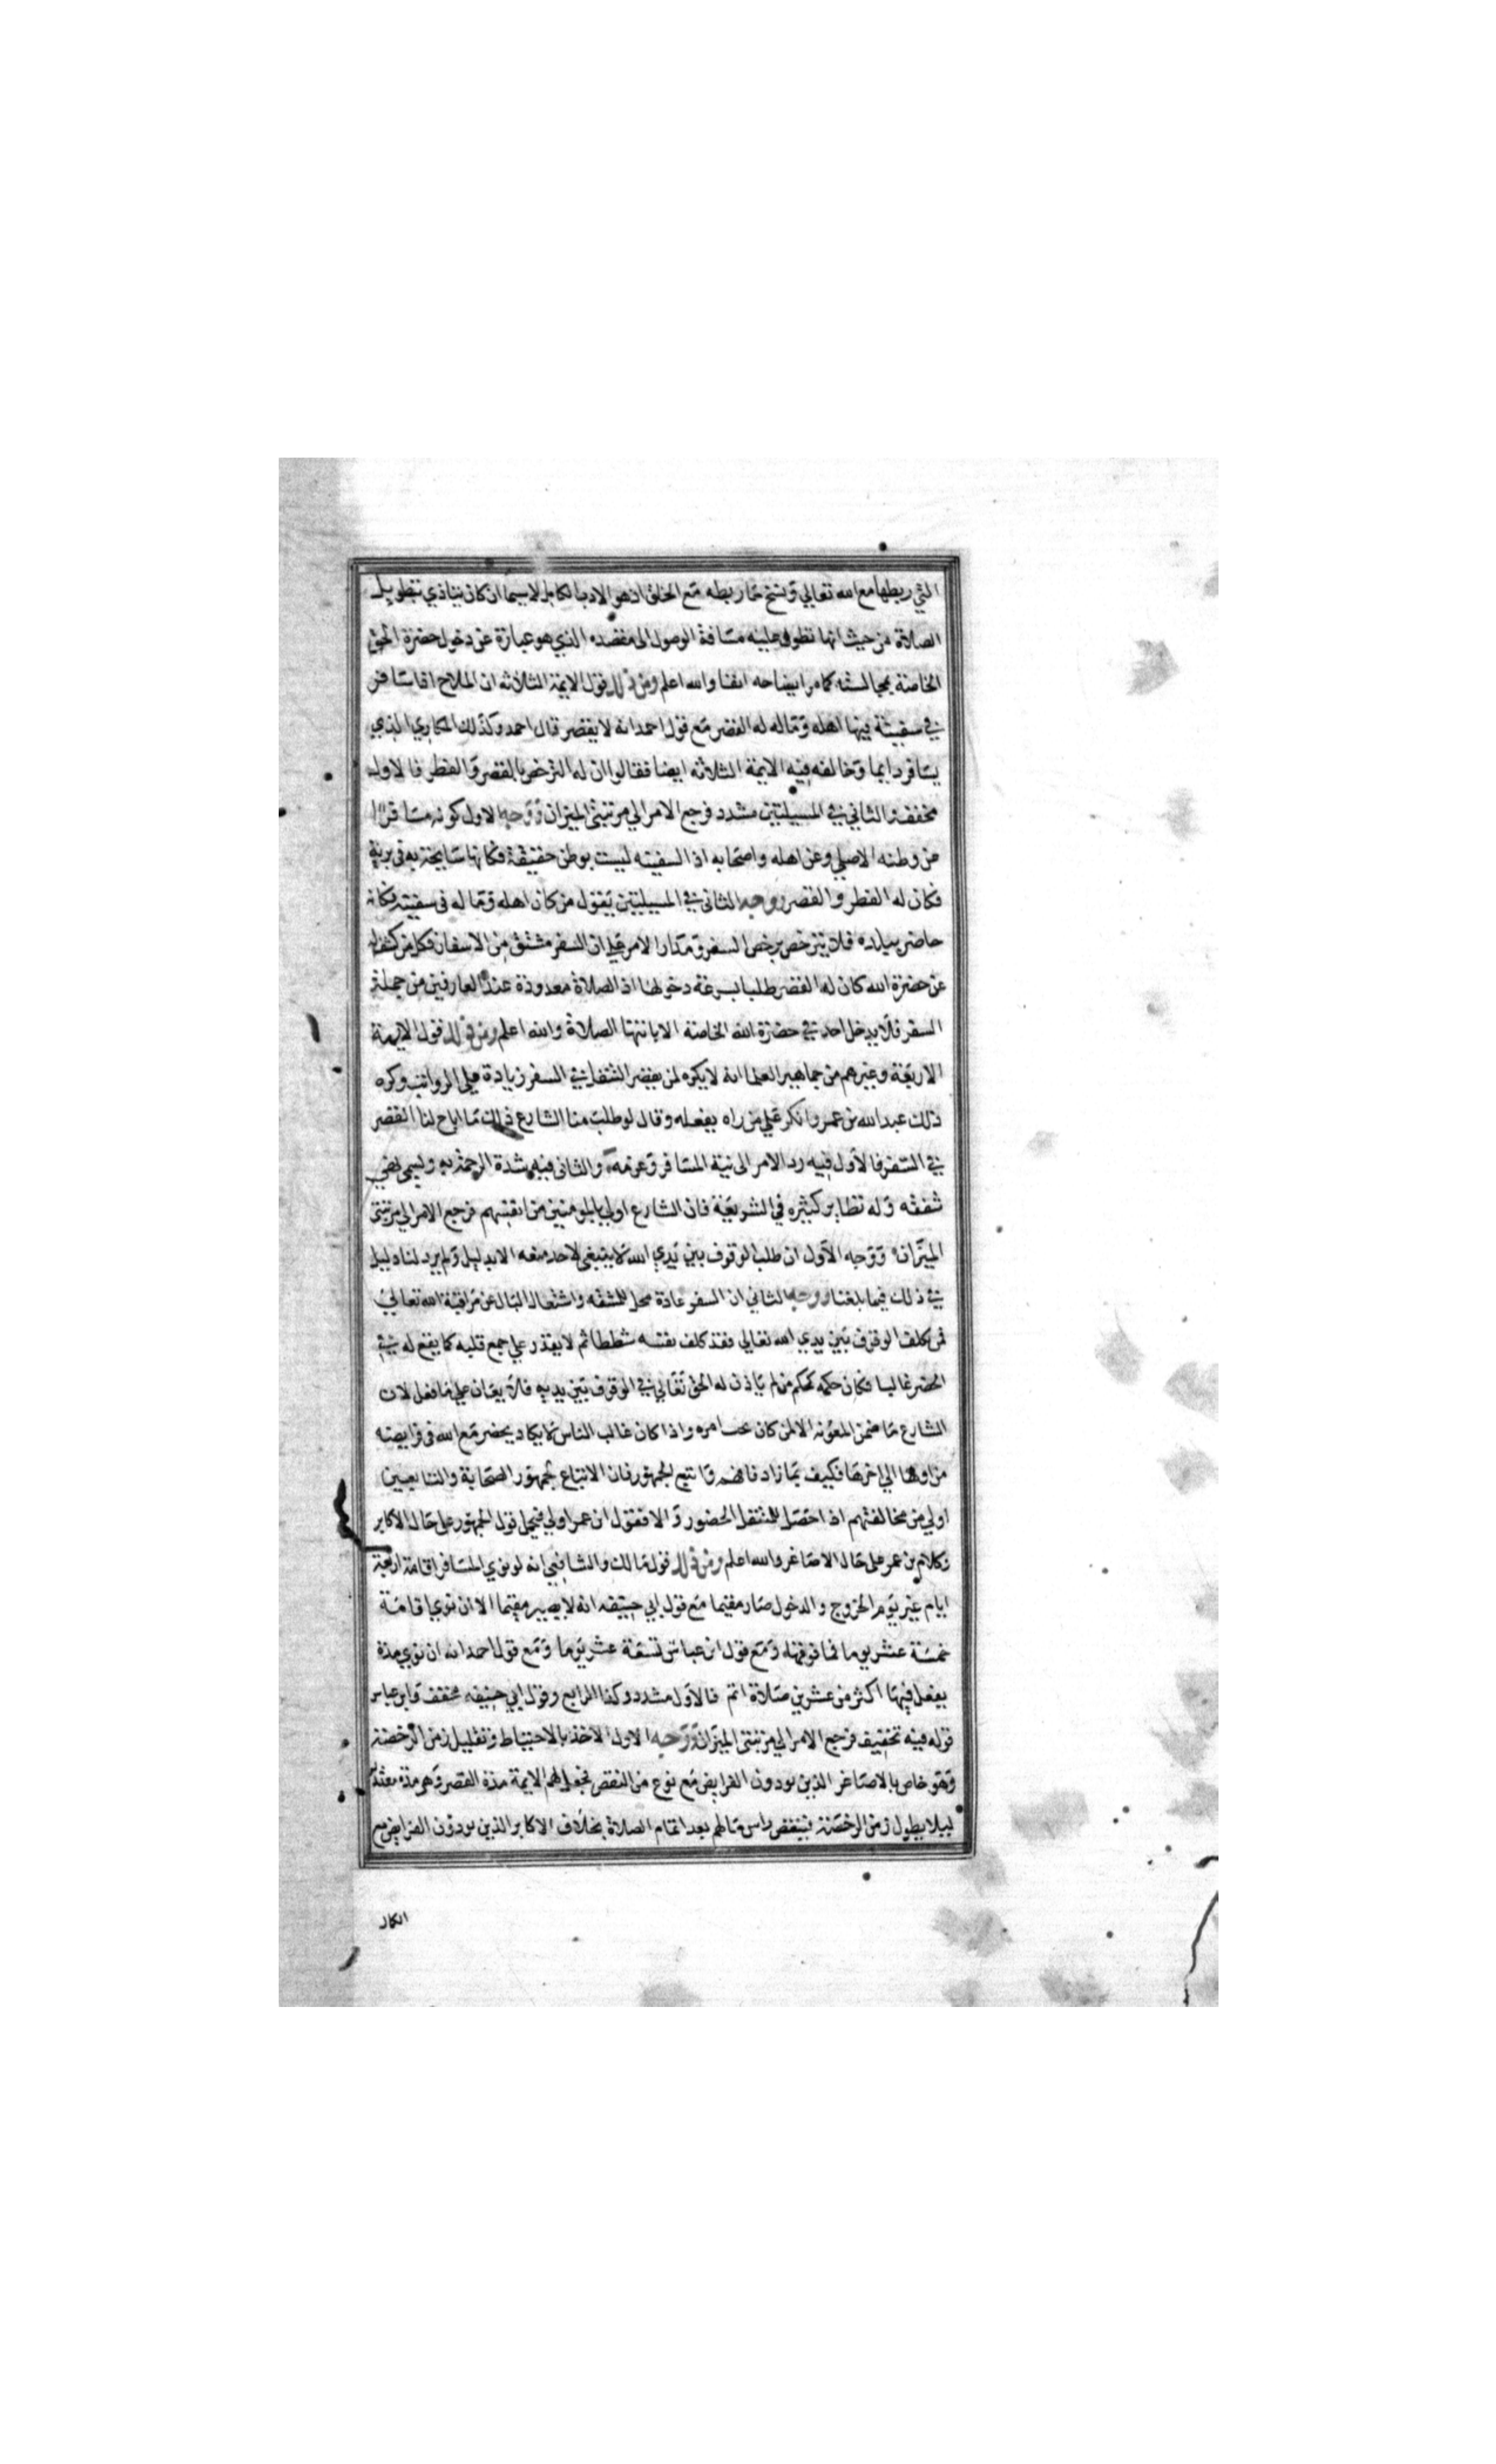 التي ربطها مع الله تعالي وينسخ ما ربطه مع الخلق اذ هو الادب الكامل لاسيما ان كان يتاذي بتطويل
الصلاة من حيث انها تطول عليه مسافة الوصول الى مقصده الذي هو عبارة عن دخول حضرة الحق
الخاصة بمجالسته كما مر ايضاحه انفا والله اعلم ومن ذلك قول الايمة الثلاثه ان الملاح اذا سافر
في سفينة فيها اهله وماله له القصر مع قول احمد انه لا يقصر قال احمد وكذلك المكاري الذي
يسافر دايما وخالفه فيه الايمة الثلاثه ايضا فقالوا ان له الترخص بالقصر والفطر فالاول
مخفف والثاني في المسيلتين مشدد فرجع الامر الي مرتبتي الميزان ووجه الاول كونه مسافرا
عن وطنه الاصلي وعن اهله واصحابه اذ السفينه ليست بوطن حقيقة فكانها سايحة به في برية
فكان له الفطر والقصر ووجه الثاني في المسيلتين يقول من كان اهله وماله في سفينته فكانه
حاضر ببلده فلا يترخص برخص السفر ومدار الامر علي ان السفر مشتق من الاسفار فكل من كشف له
عن حضرة الله كان له القصر طلبا لسرعة دخولها اذ الصلاة معدودة عند العارفين من جملة
السفر فلا يدخل احد في حضرة الله الخاصة الا بانتها الصلاة والله اعلم ومن ذلك قول الايمة
الاربعة وغيرهم من جماهير العلما انه لا يكره لمن يقصر التنفل في السفر زيادة علي الرواتب وكره
ذلك عبد الله بن عمر وانكر علي من راه يفعله وقال لو طلب منا الشارع ذلك ما اباح لنا القصر
في السفر فالاول فيه رد الامر الى نية المسافر وعزمه والثاني فيه شدة الرحمة به وليس لغي
شفقه وله نظاير كثيره في الشريعة فان الشارع اولي بالمومنين من انفسهم فرجع الامر الي مرتبتي
الميزان ووجه الاول ان طلب الوقوف بين يدي الله لا ينبغي لاحد منعه الا بدليل ولم يرد لنا دليل
في ذلك فيما بلغنا ووجه الثاني ان السفر عادة محل للمشقه واشتغال البال عن مراقبة الله تعالي
فمن كلف الوقوف بين يدي الله تعالي فقد كلف نفسه شططا ثم لا يقدر علي جمع قلبه كما يقع له في
الحضر غالبا فكان حكمه كحكم من لم ياذن له الحق تعالي في الوقوف بين يديه فلا يعان علي ما فعل لان
الشارع ما ضمن المعونه الا لمن كان تحت امره واذا كان غالب الناس لا يكاد يحضر مع الله في فرايضه
من اولها الي اخرها فكيف بما زاد فافهم واتبع الجمهور فان الاتباع لجمهور الصحابة والتابعين
اولي من مخالفتهم اذا حصل للمتنفل الحضور والا فقول ابن عمر اولي فيحمل قول الجمهور على حال الاكابر
وكلام بن عمر على حال الاصاغر والله اعلم ومن ذلك قول مالك والشافعي انه لو نوي المسافر اقامة اربعة
ايام غير يوم الخروج والدخول صار مقيما مع قول ابي حنيفه انه لا يصير مقيما الا ان نوي اقامة
خمسة عشر يوما فما فوقها ومع قول ابن عباس تسعة عشر يوما ومع قول احمد انه ان نوي مدة
يفعل فيها اكثر من عشرين صلاة اتم فالاول مشدد وكذا الرابع وقول ابي حنيفه مخفف وابن عباس
قوله فيه تخفيف فرجع الامر الي مرتبتي الميزان ووجه الاول الاخذ بالاحتياط وتقليل زمن الرخصة
وهو خاص بالاصاغر الذين يودون الفرايض مع نوع من النقص فجعل لهم الايمة مدة القصر وهو مدة
ليلا يطول زمن الرخصة فينقص راس مالهم بعد اتمام الصلاة بخلاف الاكابر الذين يودون الفرايض مع
الكمال